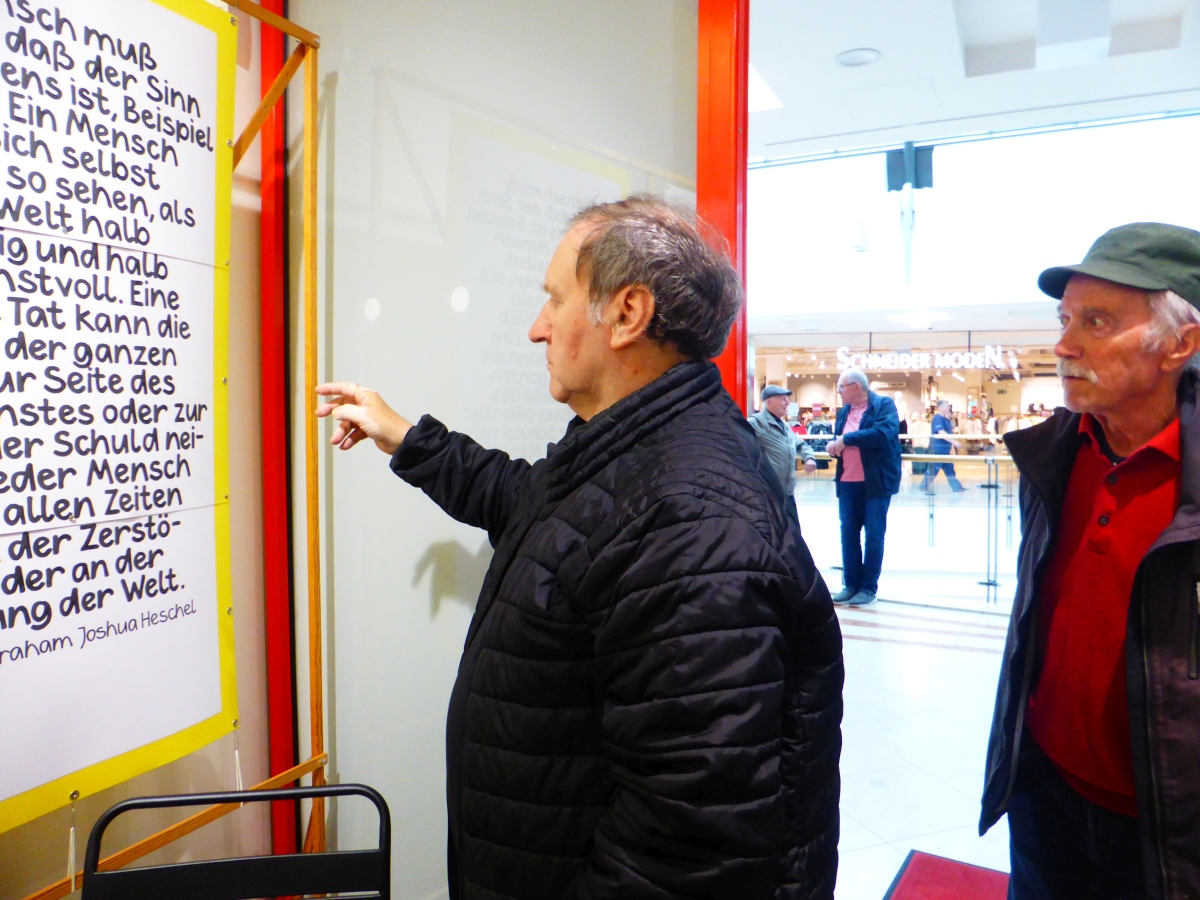 nsch muß
daß der Sinn
ens ist, Beispiel
Ein Mensch
sich selbst
so sehen, als
Welt halb
ig und halb
nstvoll. Eine
Tat kann die
der ganzen
ur Seite des
nstes oder zur
er Schuld nei-
eder Mensch
allen Zeiten
der Zerstö-
der an der
ung der Welt.
raham Joshua Heschel
SCHNEIDER MODEN